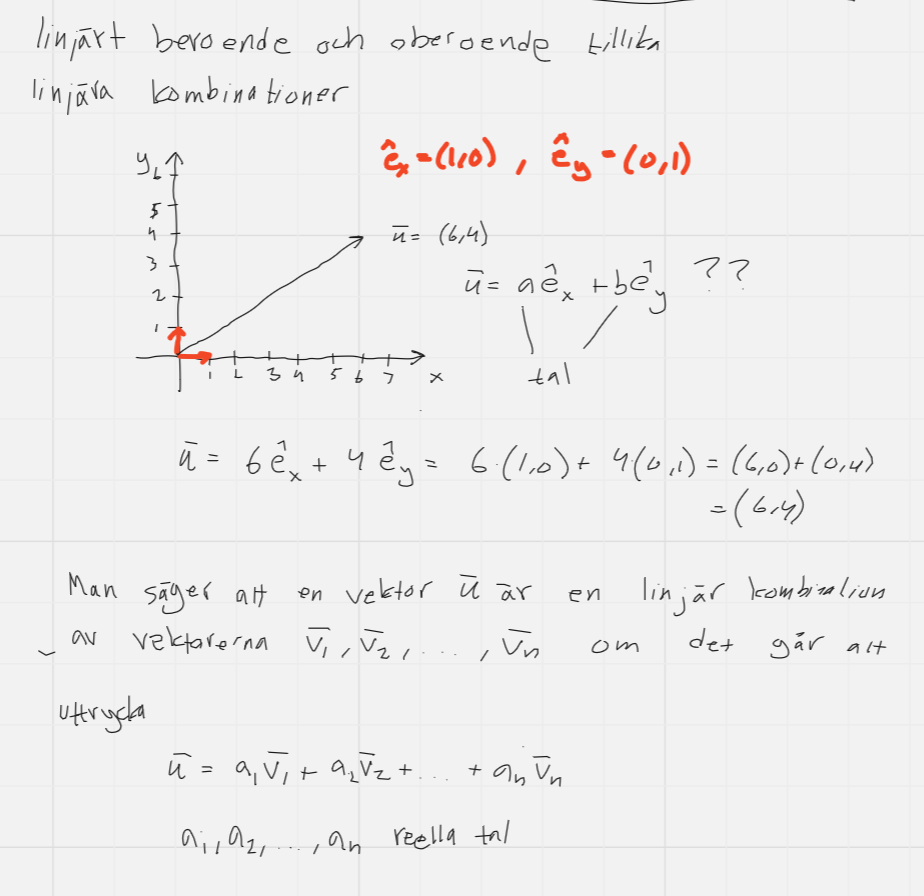 linjärt beroende och oberoende tillika
linjära kombinationer
ê_x = (1,0) , ê_y = (0,1)
y
6
5
4
3
2
1
ū = (6,4)
ū = aê_x + bê_y ??
1 2 3 4 5 6 7 x
tal
ū = 6ê_x + 4ê_y = 6·(1,0) + 4·(0,1) = (6,0)+(0,4)
= (6,4)
Man säger att en vektor ū är en linjär kombination
av vektorerna v̄₁, v̄₂, ..., v̄ₙ om det går att
uttrycka
ū = a₁v̄₁ + a₂v̄₂ + ... + aₙv̄ₙ
a₁, a₂, ..., aₙ reella tal